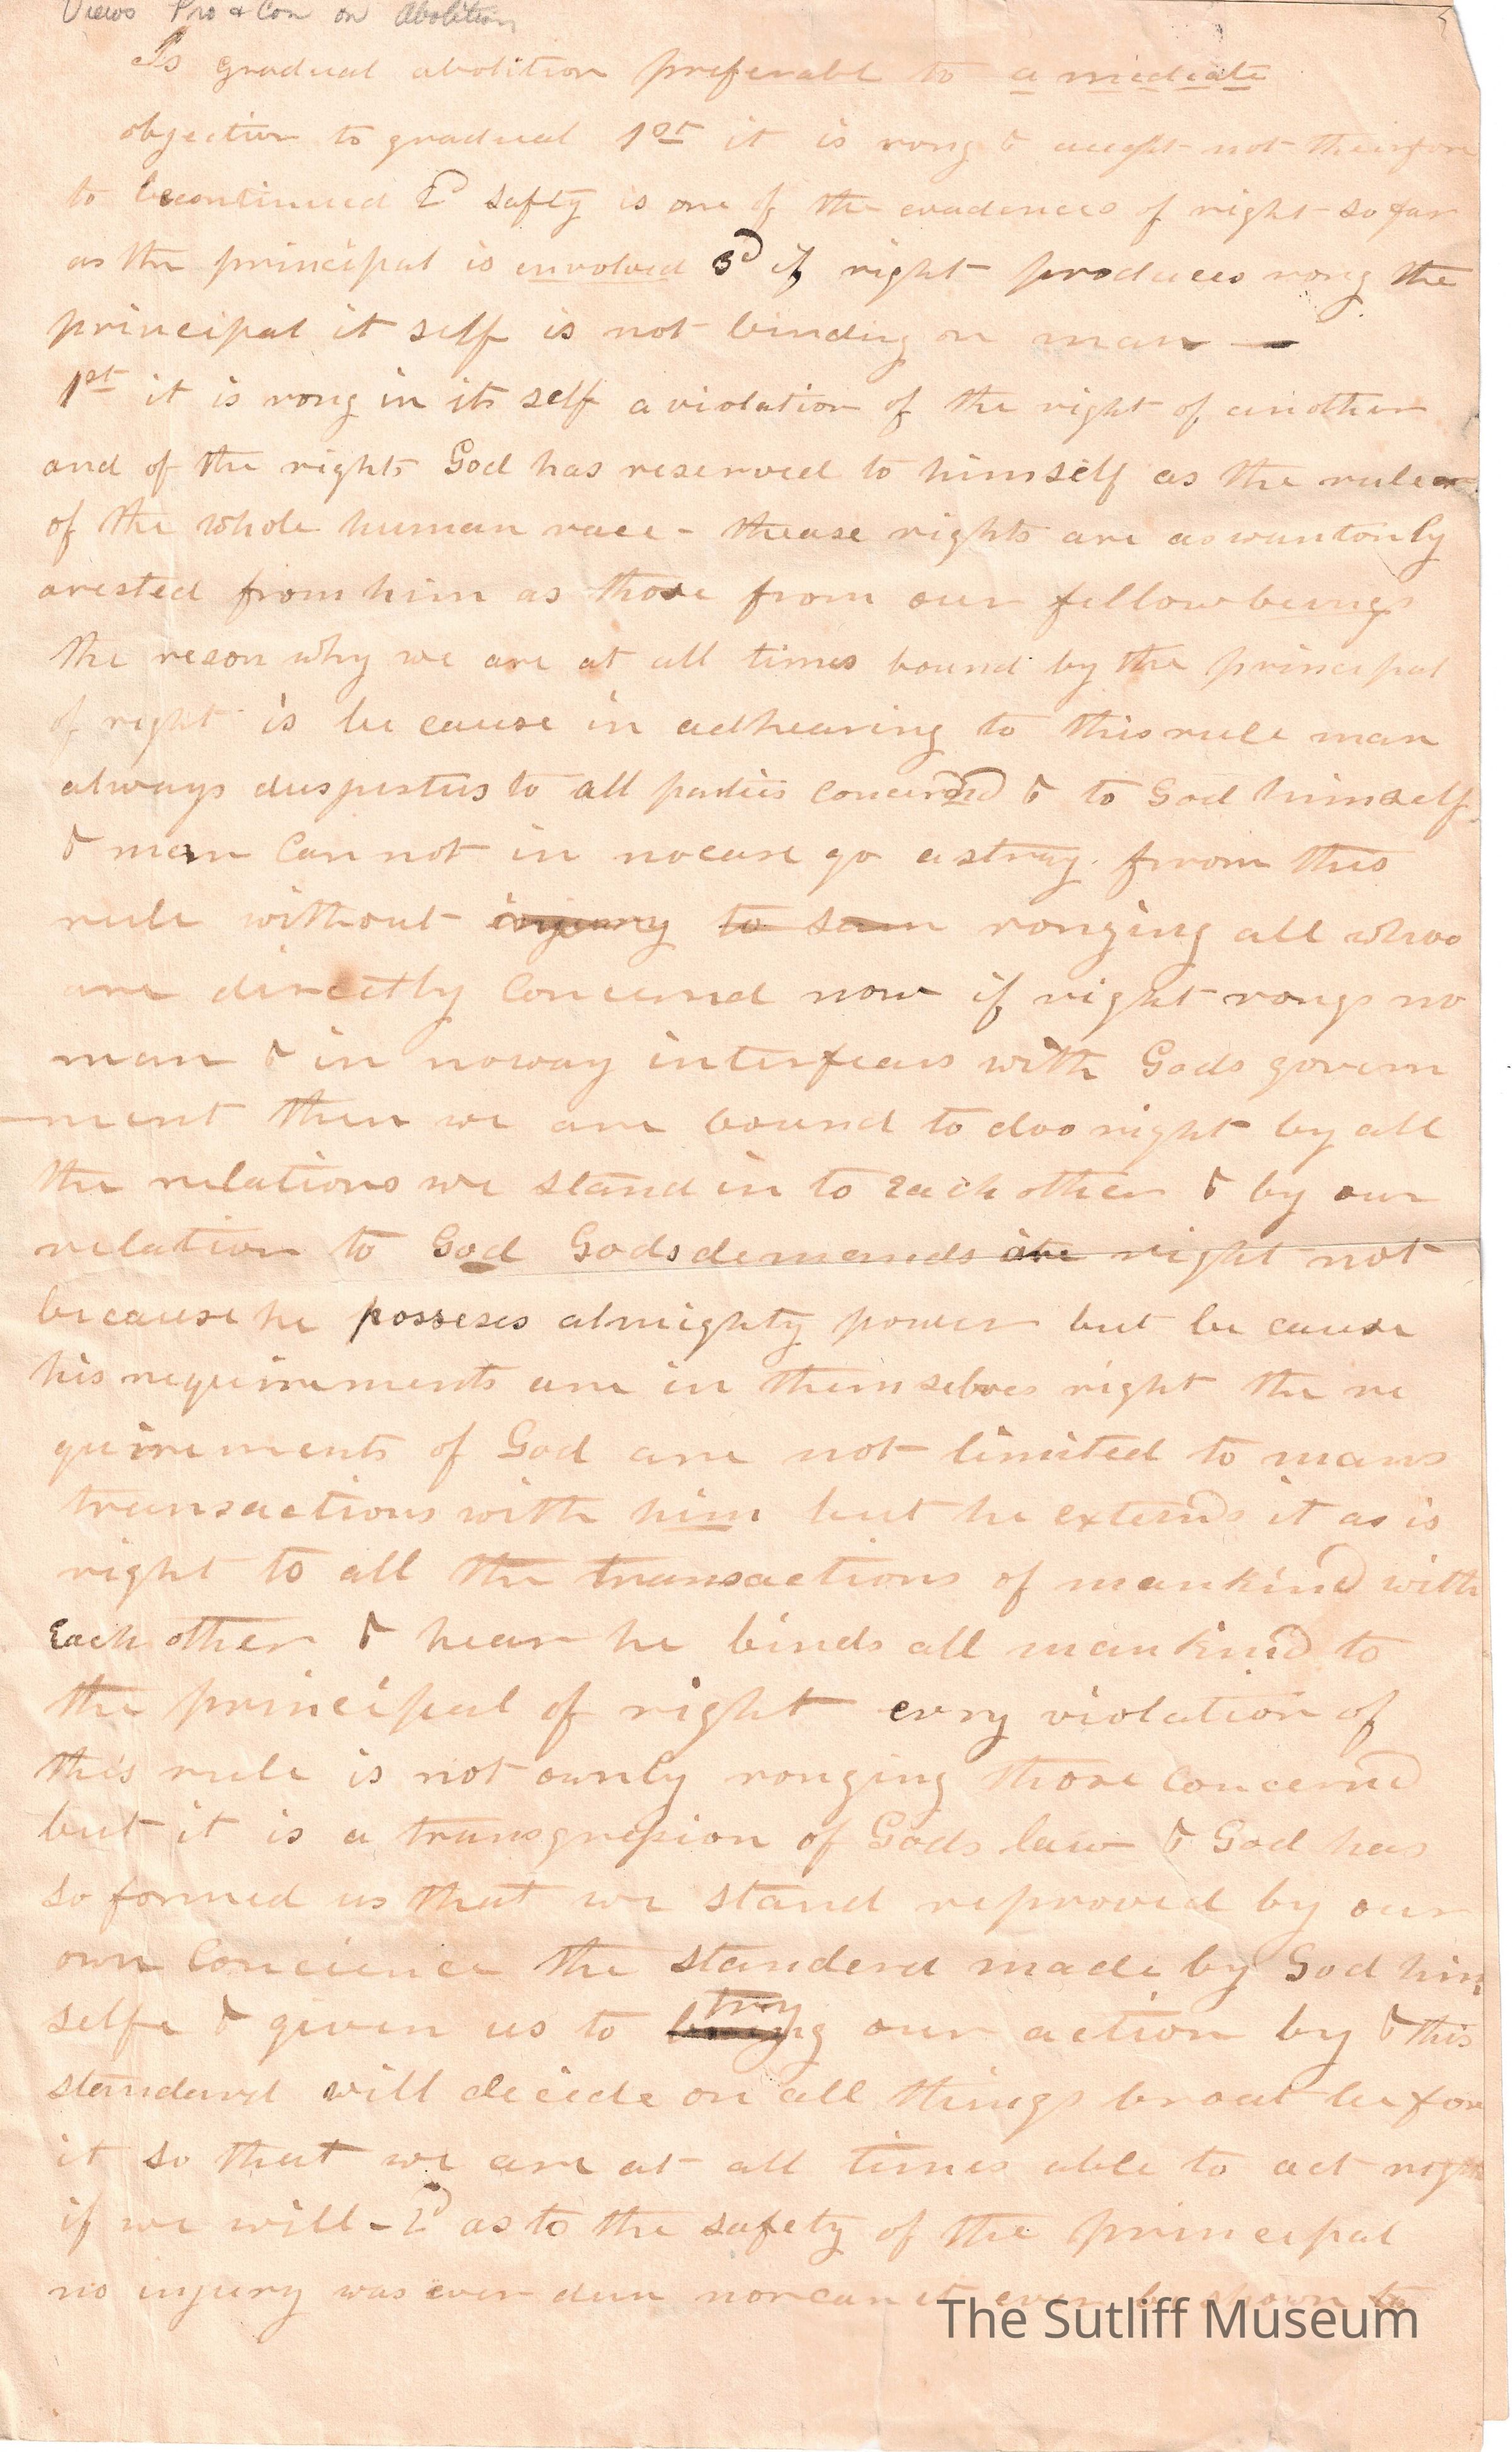 Views Pro & Con on Abolition
Is gradual abolition preferable to a mediate
objection to gradual 1st it is rong & aught not therefore
to becontinued 2d safty is one of the evadences of right so far
as the principal is envolved 3d if right produces rong the
principal it self is not binding on man —
1st it is rong in its self a violation of the right of another
and of the rights God has reserved to himself as the ruler
of the whole human race - thease rights are as wantonly
arested from him as those from our fellow beings
the reson why we are at all times bound by the principal
of right is be cause in adhearing to this rule man
always dus justus to all parties concernd & to God himself
& man can not in nocase go astray from this
rule without injury to ronging all whoo
are directly concerned now if right rongs no
man & in noway interfears with Gods govern
ment then we are bound to doo right by all
the relations we stand in to each other & by our
relation to God Gods demands are right not
because he posseses almighty power but be cause
his requirements are in themselves right the re
quirements of God are not limited to mans
transactions with him but he extends it as is
right to all the transactions of mankind with
Each other & hear he binds all mankind to
the principal of right evry violation of
this rule is not ownly ronging those concernd
but it is a transgression of Gods law & God has
so formed us that we stand reproved by our
own Concience the standerd made by God him
selfe & given us to try our action by & this
standard will decide on all things braut befor
it so that we are at all times able to act right
if we will - 2d as to the safety of the principal
no injury was ever dun nor can it ever be shown to
The Sutliff Museum